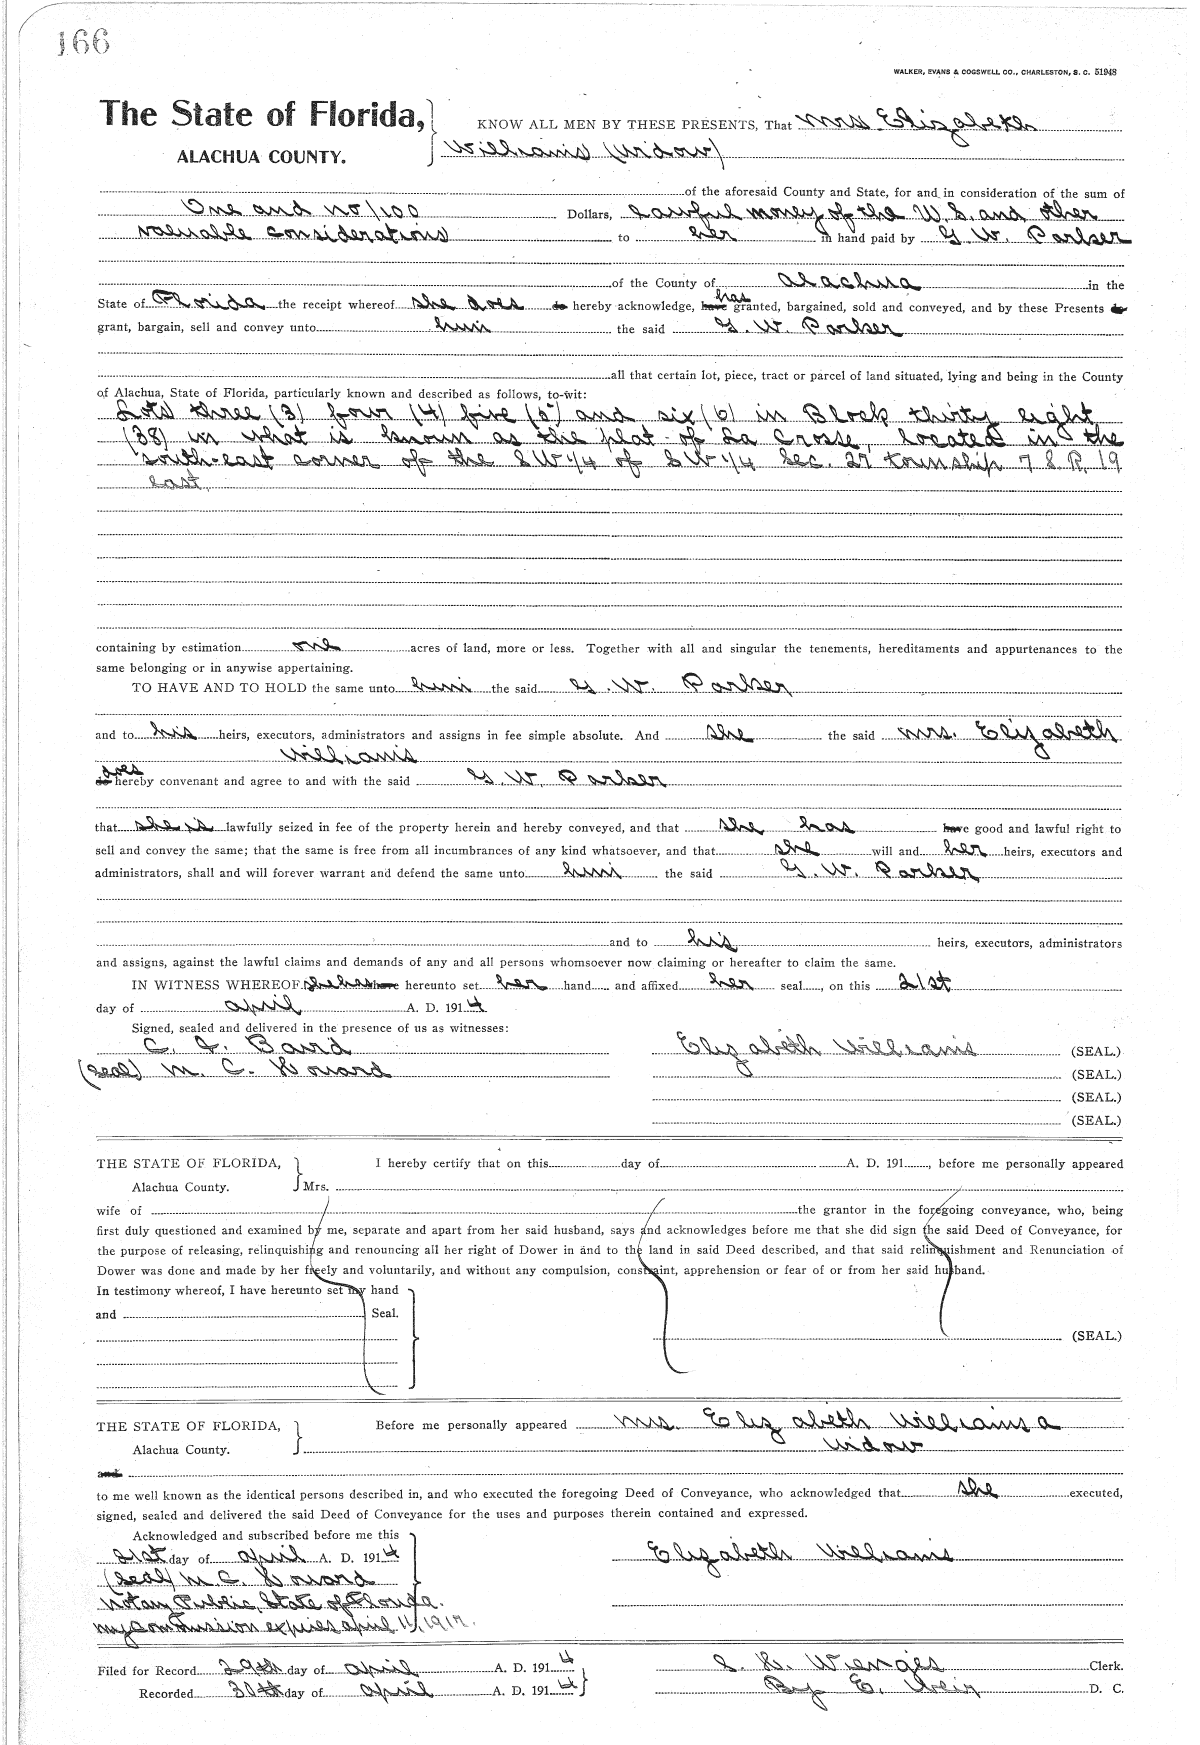 166
WALKER, EVANS & COGSWELL CO., CHARLESTON, S. C. 51948
The State of Florida,
ALACHUA COUNTY.
KNOW ALL MEN BY THESE PRESENTS, That Mrs Elizabeth
Williams (widow)
of the aforesaid County and State, for and in consideration of the sum of
One and no/100 Dollars, Lawful money of the U. S. and other
valuable considerations to her in hand paid by G. W. Parker
of the County of Alachua in the
State of Florida the receipt whereof she does do hereby acknowledge, have has granted, bargained, sold and conveyed, and by these Presents do
grant, bargain, sell and convey unto him the said G. W. Parker
all that certain lot, piece, tract or parcel of land situated, lying and being in the County
of Alachua, State of Florida, particularly known and described as follows, to-wit:
Lots three (3) four (4) five (5) and six (6) in Block thirty eight
(38) in what is known as the plat of La Crosse, located in the
south-east corner of the SW 1/4 of SW 1/4 Sec. 27 township 7 S. R. 19
east.
containing by estimation one acres of land, more or less. Together with all and singular the tenements, hereditaments and appurtenances to the
same belonging or in anywise appertaining.
TO HAVE AND TO HOLD the same unto him the said G. W. Parker
and to his heirs, executors, administrators and assigns in fee simple absolute. And she the said Mrs. Elizabeth
Williams
does
do hereby convenant and agree to and with the said G. W. Parker
that she is lawfully seized in fee of the property herein and hereby conveyed, and that she has have good and lawful right to
sell and convey the same; that the same is free from all incumbrances of any kind whatsoever, and that she will and her heirs, executors and
administrators, shall and will forever warrant and defend the same unto him the said G. W. Parker
and to his heirs, executors, administrators
and assigns, against the lawful claims and demands of any and all persons whomsoever now claiming or hereafter to claim the same.
IN WITNESS WHEREOF, she has have hereunto set her hand and affixed her seal, on this 21st
day of April A. D. 1914
Signed, sealed and delivered in the presence of us as witnesses:
C. J. Baird Elizabeth Williams (SEAL.)
(seal) M. C. Howard (SEAL.)
(SEAL.)
(SEAL.)
THE STATE OF FLORIDA,
Alachua County.
I hereby certify that on this day of A. D. 191 , before me personally appeared
Mrs.
wife of the grantor in the foregoing conveyance, who, being
first duly questioned and examined by me, separate and apart from her said husband, says and acknowledges before me that she did sign the said Deed of Conveyance, for
the purpose of releasing, relinquishing and renouncing all her right of Dower in and to the land in said Deed described, and that said relinquishment and Renunciation of
Dower was done and made by her freely and voluntarily, and without any compulsion, constraint, apprehension or fear of or from her said husband.
In testimony whereof, I have hereunto set my hand
and Seal.
(SEAL.)
THE STATE OF FLORIDA,
Alachua County.
Before me personally appeared Mrs. Elizabeth Williams a
widow
and
to me well known as the identical persons described in, and who executed the foregoing Deed of Conveyance, who acknowledged that she executed,
signed, sealed and delivered the said Deed of Conveyance for the uses and purposes therein contained and expressed.
Acknowledged and subscribed before me this
21st day of April A. D. 1914 Elizabeth Williams
(seal) M. C. Howard
Notary Public, State of Florida.
My commission expires April 11, 1917.
Filed for Record 29th day of April A. D. 1914 S. H. Wienges Clerk.
Recorded 30th day of April A. D. 1914 By E. Weir D. C.